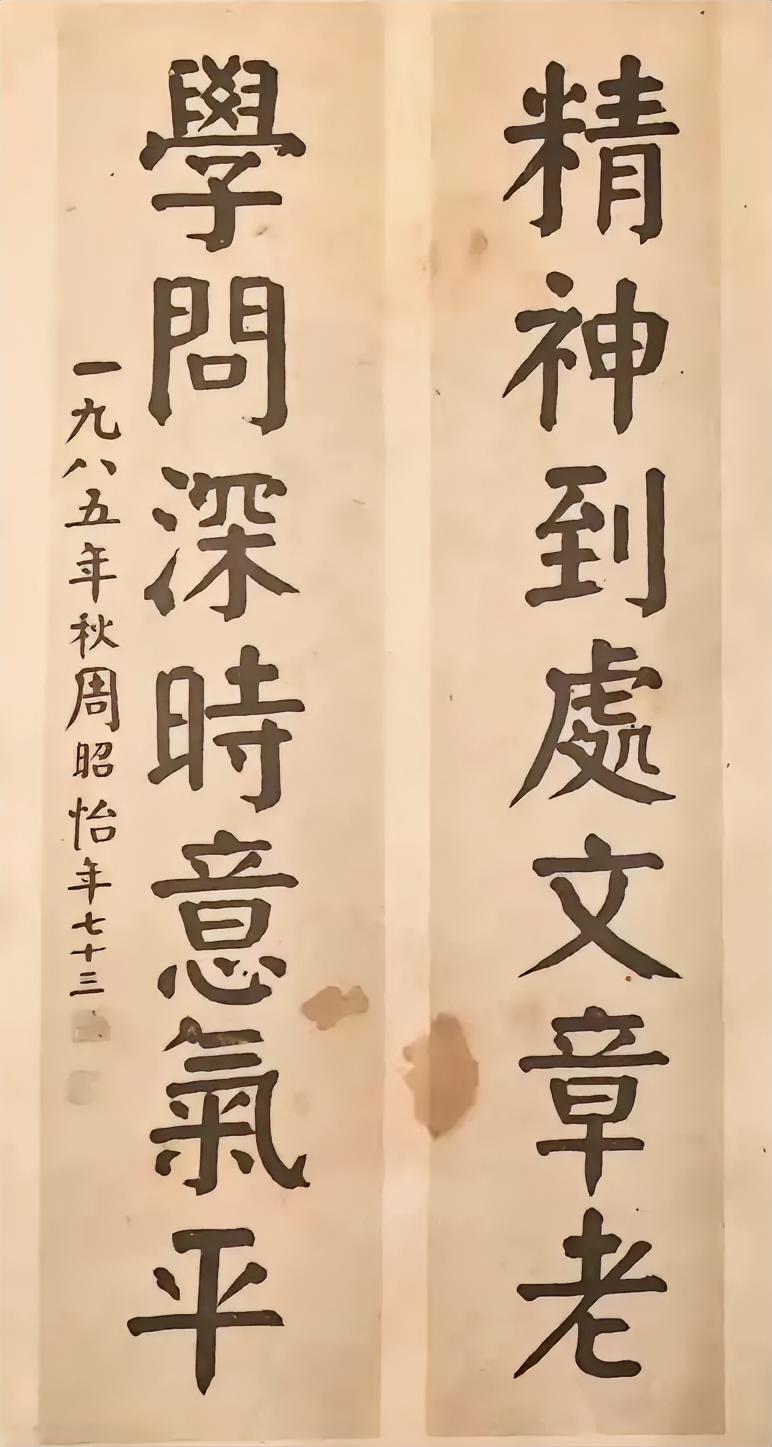 精神到處文章老
學問深時意氣平
一九八五年秋周昭怡年七十三